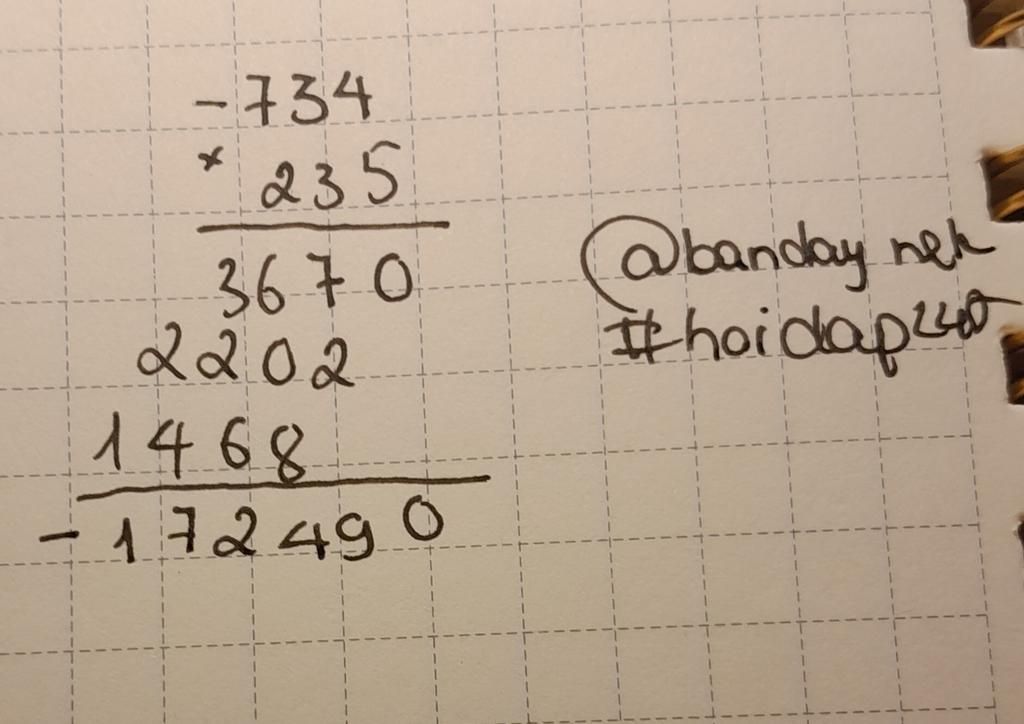 -734
× 235
3670
2202
1468
-172490
@banday nek
#hoidap240